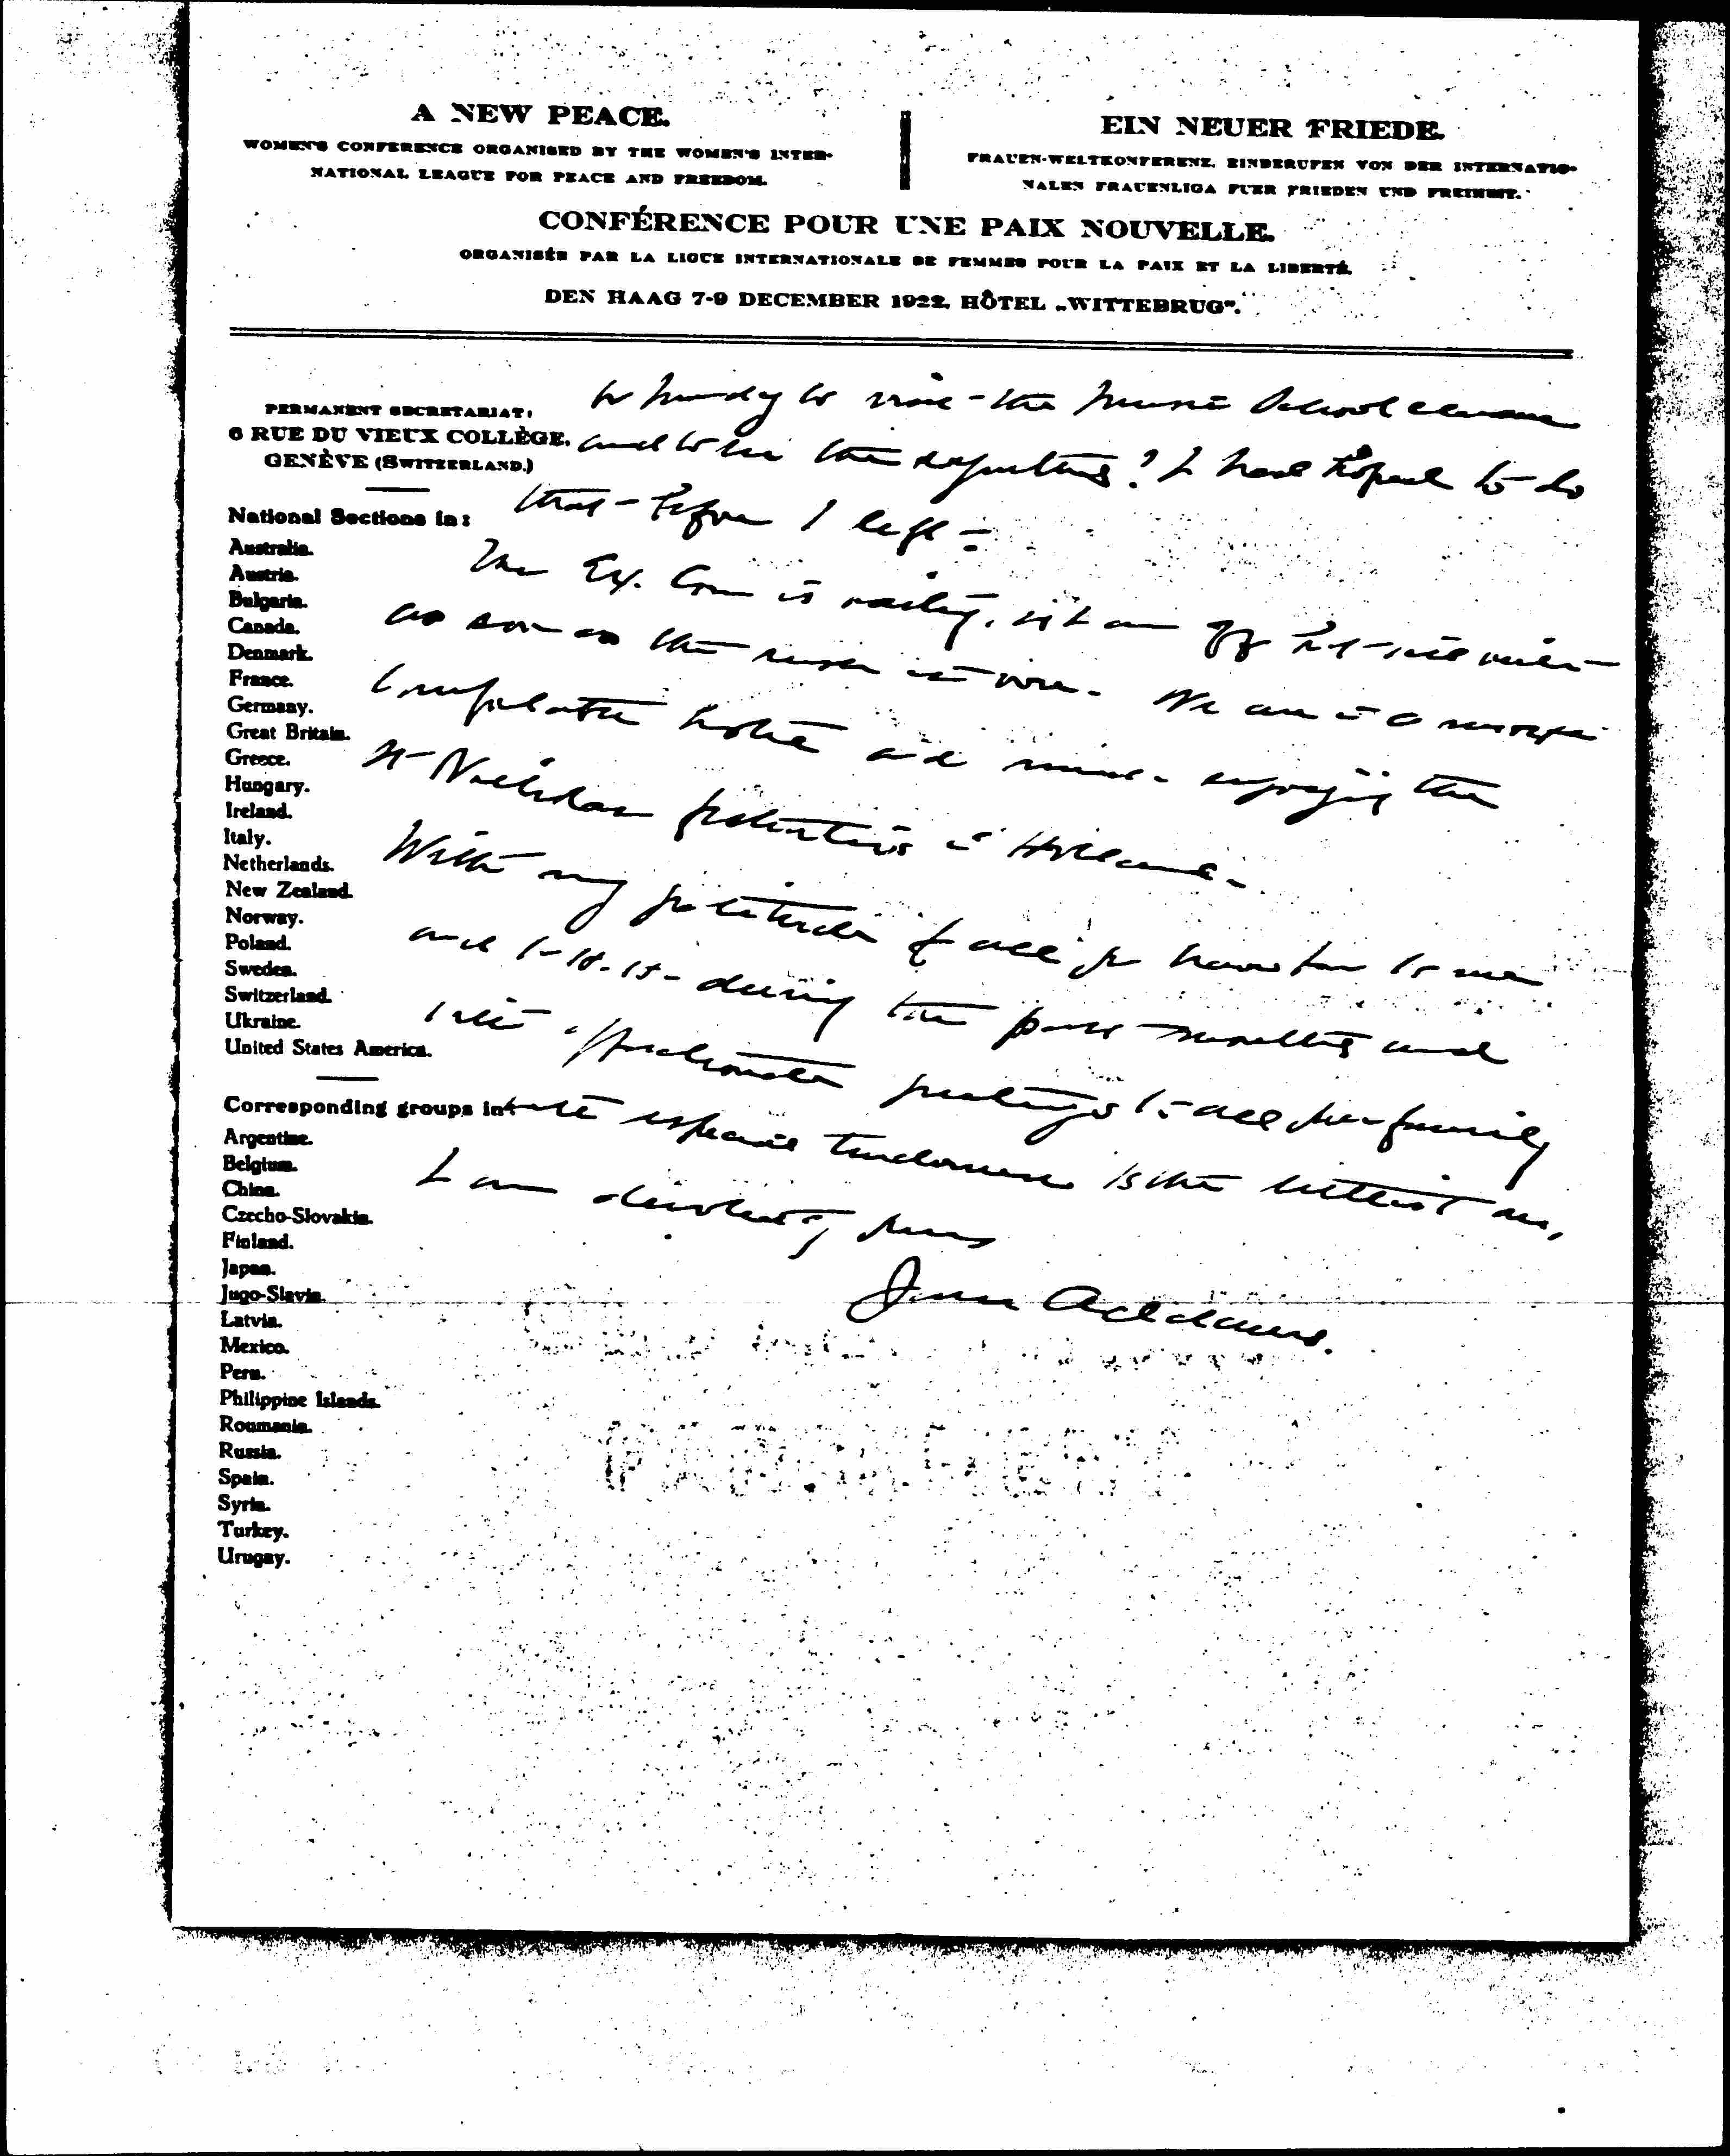 A NEW PEACE.
WOMEN'S CONFERENCE ORGANISED BY THE WOMEN'S INTER-
NATIONAL LEAGUE FOR PEACE AND FREEDOM.
EIN NEUER FRIEDE.
FRAUEN-WELTKONFERENZ, EINBERUFEN VON DER INTERNATIO-
NALEN FRAUENLIGA FUER FRIEDEN UND FREIHEIT.
CONFÉRENCE POUR UNE PAIX NOUVELLE.
ORGANISÉE PAR LA LIGUE INTERNATIONALE DE FEMMES POUR LA PAIX ET LA LIBERTÉ.
DEN HAAG 7-9 DECEMBER 1922. HÔTEL „WITTEBRUG".
PERMANENT SECRETARIAT:
6 RUE DU VIEUX COLLÈGE.
GENÈVE (SWITZERLAND.)
National Sections in:
Australia.
Austria.
Bulgaria.
Canada.
Denmark.
France.
Germany.
Great Britain.
Greece.
Hungary.
Ireland.
Italy.
Netherlands.
New Zealand.
Norway.
Poland.
Sweden.
Switzerland.
Ukraine.
United States America.
Corresponding groups in:
Argentine.
Belgium.
China.
Czecho-Slovakia.
Finland.
Japan.
Jugo-Slavia.
Latvia.
Mexico.
Peru.
Philippine Islands.
Roumania.
Russia.
Spain.
Syria.
Turkey.
Urugay.
the Music School
and to the ? I had hoped to do
that before I left -
The Ex. Com is meeting,
as soon as the is over. We are in a
hotel and enjoying the
St Nicholas festivities in Holland -
With my gratitude for all you have been to me
and to W.I.L. during the past months and
with affectionate greetings to all your family
with especial tenderness to the littlest one,
I am devotedly yours
Jane Addams.